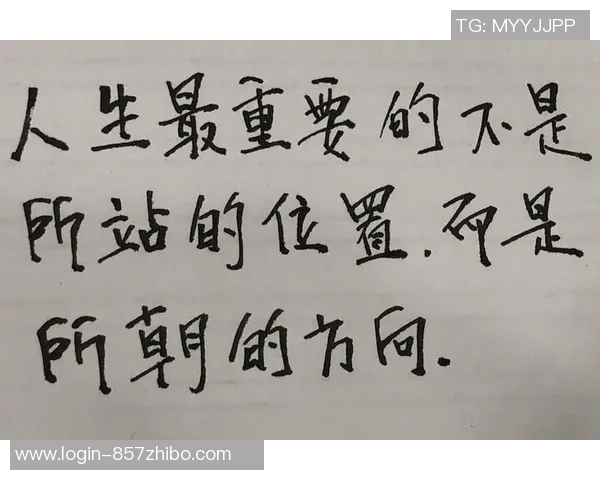 TG: MYYJJPP
人生最重要的不是
所站的位置.而是
所朝的方向.
www.login-857zhibo.com